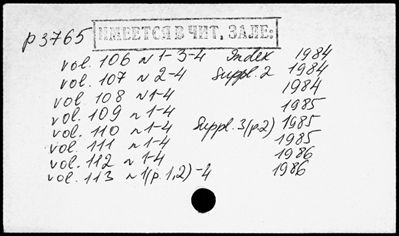 р3765 ИМЕЕТСЯ В ЧИТ. ЗАЛЕ:
vol. 106 N 1-3-4 Index 1984
vol. 107 N 2-4 Suppl. 2 1984
vol. 108 N 1-4 1984
vol. 109 N 1-4 1985
vol. 110 N 1-4 Suppl. 3(p2) 1985
vol. 111 N 1-4 1985
vol. 112 N 1-4 1986
vol. 113 N 1(p.1,2)-4 1986